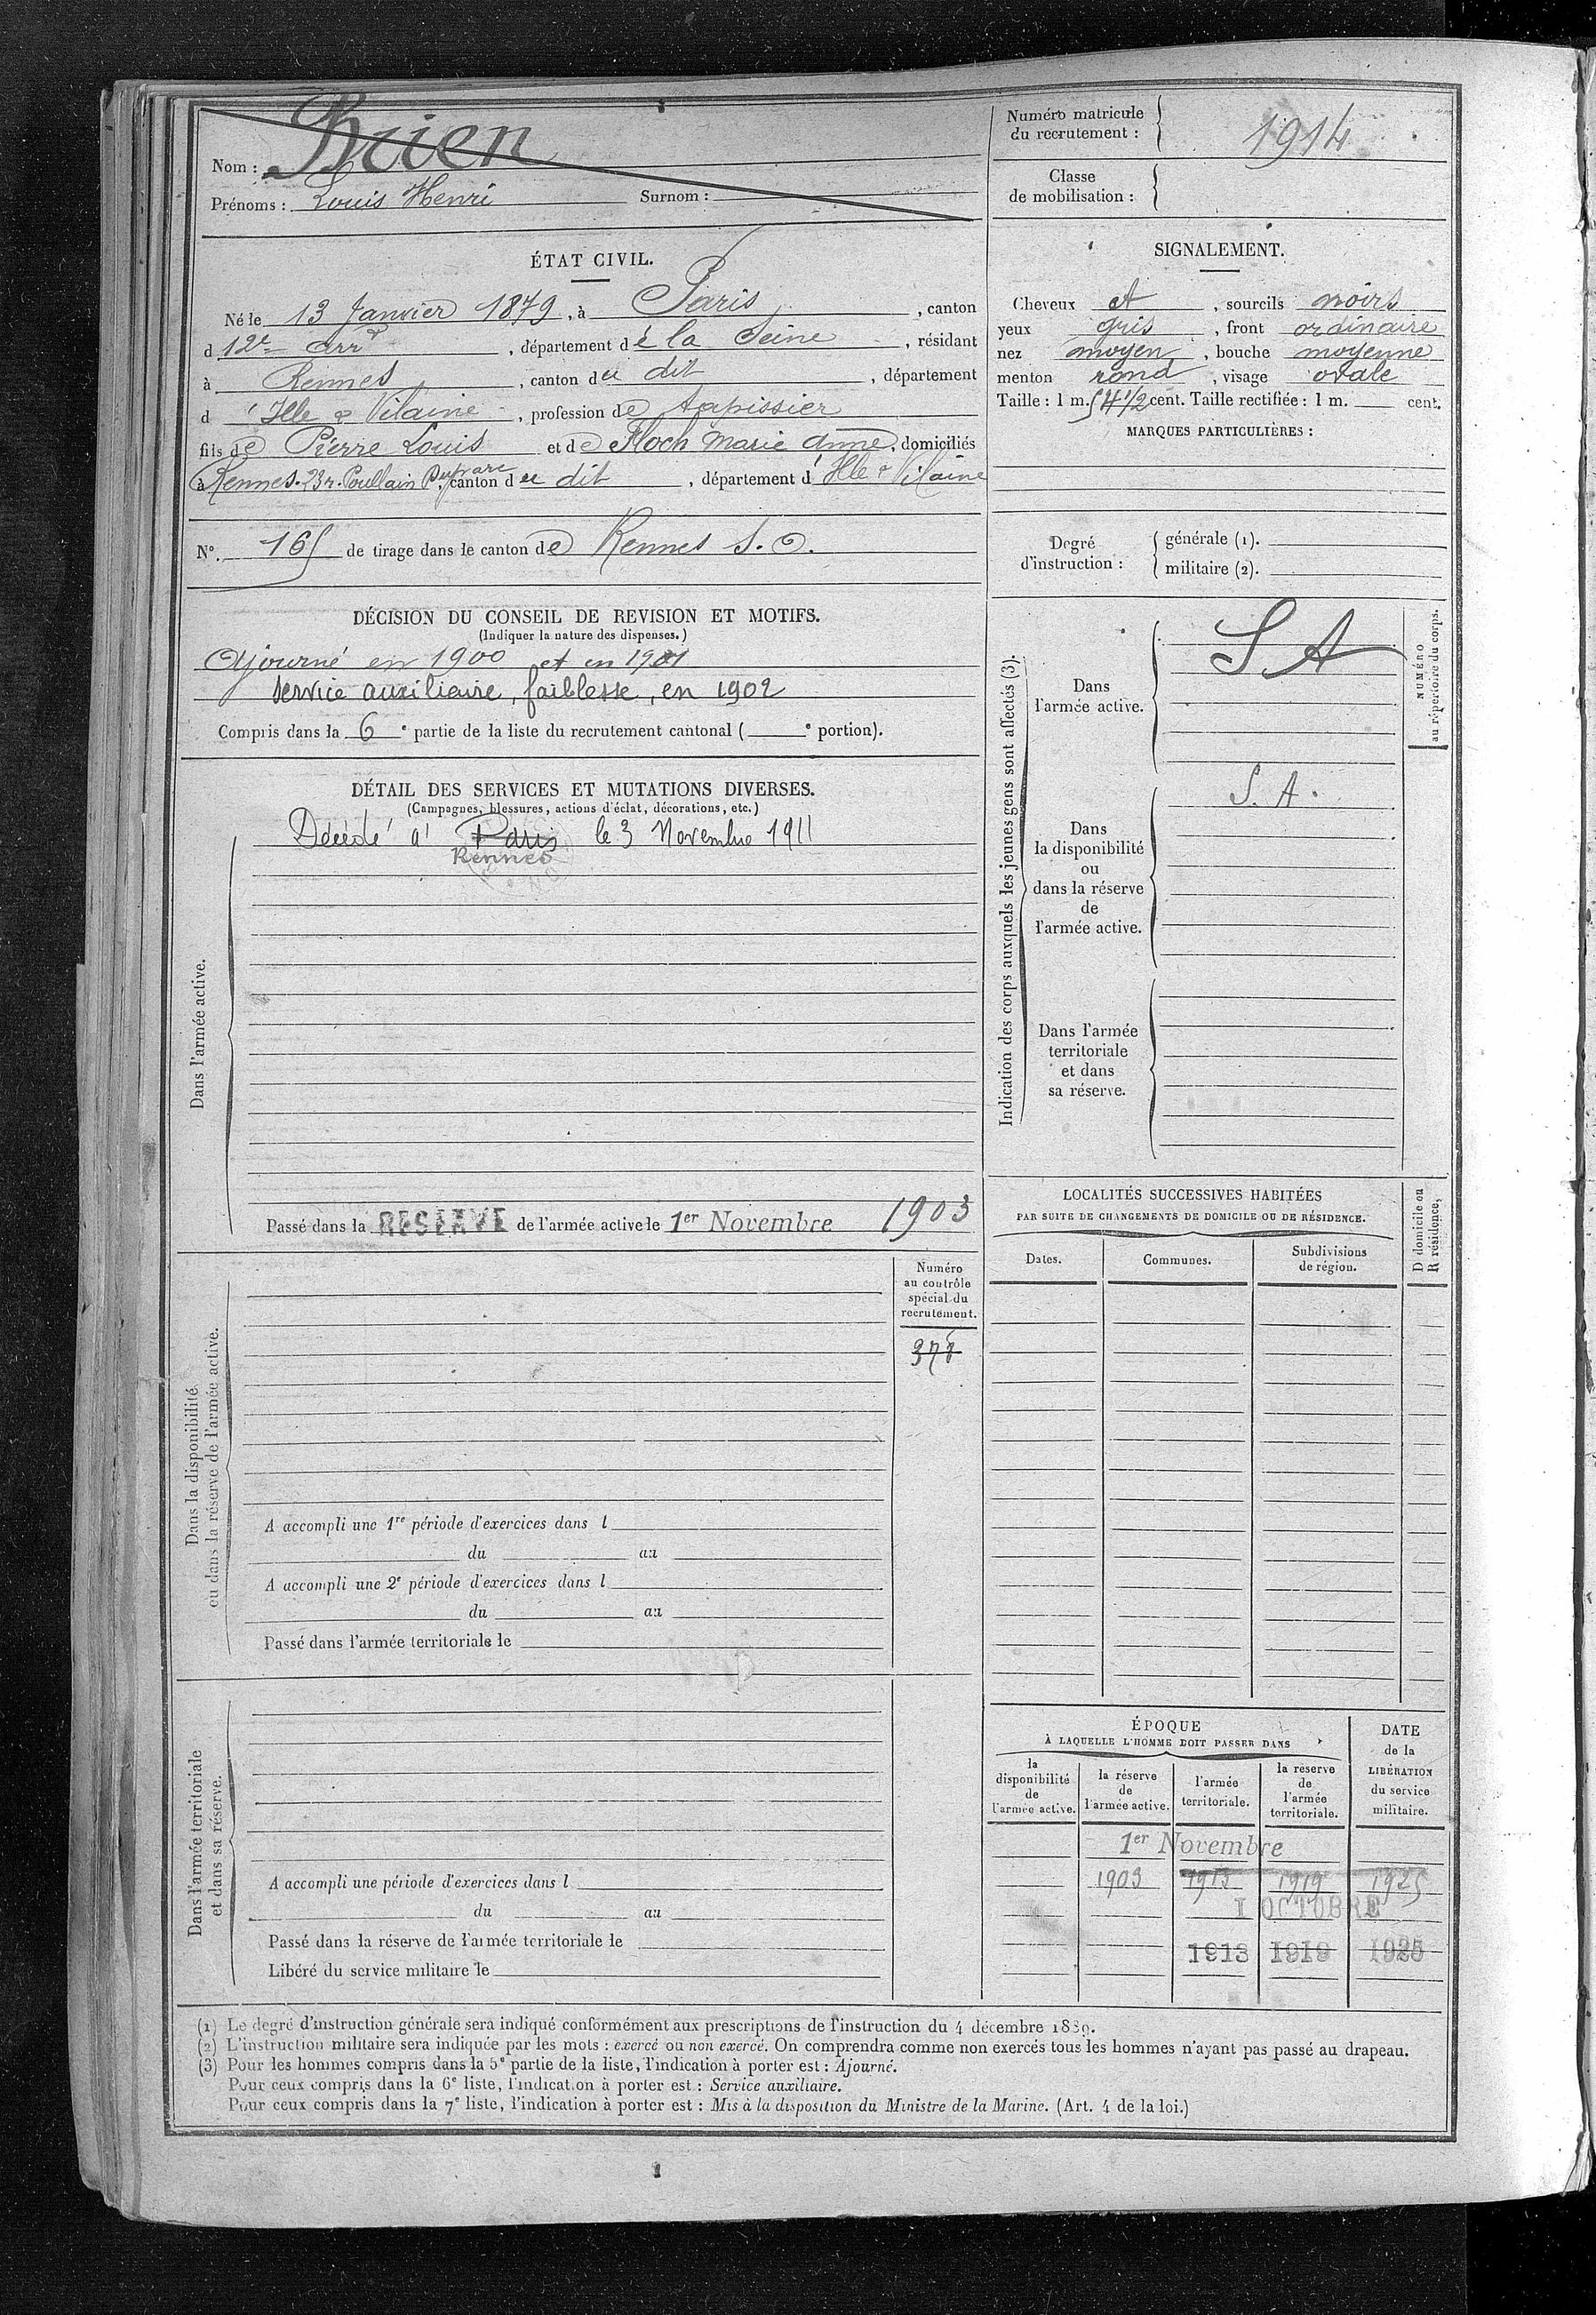 Nom : Bruen
Prénoms : Louis Henri Surnom :
Numéro matricule du recrutement : 1914
Classe de mobilisation :
ÉTAT CIVIL.
Né le 13 Janvier 1879, à Paris, canton
d 12e arrt, département de la Seine, résidant
à Rennes, canton du dit, département
d'Ille & Vilaine, profession de tapissier
fils de Pierre Louis et de Floch Marie Anne, domiciliés
à Rennes. 23 r. Poullain Duparc, canton du dit, département d'Ille & Vilaine
N°. 165 de tirage dans le canton de Rennes S. O.
SIGNALEMENT.
Cheveux et, sourcils noirs
yeux gris, front ordinaire
nez moyen, bouche moyenne
menton rond, visage ovale
Taille : 1 m. 54 1/2 cent. Taille rectifiée : 1 m. cent.
MARQUES PARTICULIÈRES :
Degré d'instruction : générale (1).
militaire (2).
DÉCISION DU CONSEIL DE REVISION ET MOTIFS.
(Indiquer la nature des dispenses.)
Ajourné en 1900 et en 1901
Service auxiliaire, faiblesse, en 1902
Compris dans la 6e partie de la liste du recrutement cantonal ( e portion).
DÉTAIL DES SERVICES ET MUTATIONS DIVERSES.
(Campagnes, blessures, actions d'éclat, décorations, etc.)
Dans l'armée active.
Décédé à Paris le 3 Novembre 1911
Rennes
Passé dans la RÉSERVE de l'armée active le 1er Novembre 1903
Indication des corps auxquels les jeunes gens sont affectés (3).
NUMÉRO au répertoire du corps.
Dans l'armée active.
S A
Dans la disponibilité ou dans la réserve de l'armée active.
S. A.
Dans l'armée territoriale et dans sa réserve.
LOCALITÉS SUCCESSIVES HABITÉES
PAR SUITE DE CHANGEMENTS DE DOMICILE OU DE RÉSIDENCE.
Dates. Communes. Subdivisions de région.
D domicile ou R résidence,
Dans la disponibilité ou dans la réserve de l'armée active.
Numéro au contrôle spécial du recrutement.
A accompli une 1re période d'exercices dans l
du au
A accompli une 2e période d'exercices dans l
du au
Passé dans l'armée territoriale le
Dans l'armée territoriale et dans sa réserve.
A accompli une période d'exercices dans l
du au
Passé dans la réserve de l'armée territoriale le
Libéré du service militaire le
ÉPOQUE
À LAQUELLE L'HOMME DOIT PASSER DANS
DATE de la LIBÉRATION du service militaire.
la disponibilité de l'armée active.
la réserve de l'armée active.
l'armée territoriale.
la réserve de l'armée territoriale.
1er Novembre
1903 1913 1919 1925
1 OCTOBRE
1913 1919 1925
(1) Le degré d'instruction générale sera indiqué conformément aux prescriptions de l'instruction du 4 décembre 1889.
(2) L'instruction militaire sera indiquée par les mots : exercé ou non exercé. On comprendra comme non exercés tous les hommes n'ayant pas passé au drapeau.
(3) Pour les hommes compris dans la 5e partie de la liste, l'indication à porter est : Ajourné.
Pour ceux compris dans la 6e liste, l'indication à porter est : Service auxiliaire.
Pour ceux compris dans la 7e liste, l'indication à porter est : Mis à la disposition du Ministre de la Marine. (Art. 4 de la loi.)